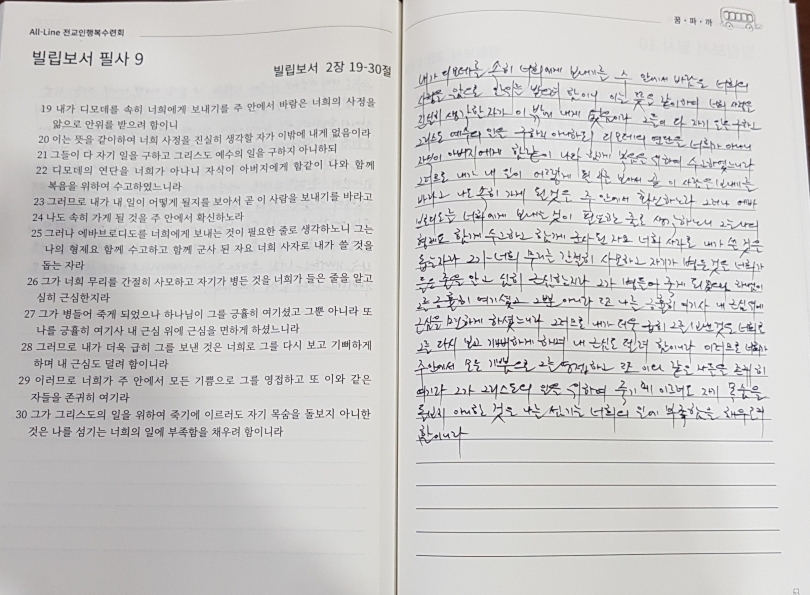 All-Line 전교인행복수련회
빌립보서 필사 9
빌립보서 2장 19-30절
19 내가 디모데를 속히 너희에게 보내기를 주 안에서 바람은 너희의 사정을
앎으로 안위를 받으려 함이니
20 이는 뜻을 같이하여 너희 사정을 진실히 생각할 자가 이밖에 내게 없음이라
21 그들이 다 자기 일을 구하고 그리스도 예수의 일을 구하지 아니하되
22 디모데의 연단을 너희가 아나니 자식이 아버지에게 함같이 나와 함께
복음을 위하여 수고하였느니라
23 그러므로 내가 내 일이 어떻게 될지를 보아서 곧 이 사람을 보내기를 바라고
24 나도 속히 가게 될 것을 주 안에서 확신하노라
25 그러나 에바브로디도를 너희에게 보내는 것이 필요한 줄로 생각하노니 그는
나의 형제요 함께 수고하고 함께 군사 된 자요 너희 사자로 내가 쓸 것을
돕는 자라
26 그가 너희 무리를 간절히 사모하고 자기가 병든 것을 너희가 들은 줄을 알고
심히 근심한지라
27 그가 병들어 죽게 되었으나 하나님이 그를 긍휼히 여기셨고 그뿐 아니라 또
나를 긍휼히 여기사 내 근심 위에 근심을 면하게 하셨느니라
28 그러므로 내가 더욱 급히 그를 보낸 것은 너희로 그를 다시 보고 기뻐하게
하며 내 근심도 덜려 함이니라
29 이러므로 너희가 주 안에서 모든 기쁨으로 그를 영접하고 또 이와 같은
자들을 존귀히 여기라
30 그가 그리스도의 일을 위하여 죽기에 이르러도 자기 목숨을 돌보지 아니한
것은 나를 섬기는 너희의 일에 부족함을 채우려 함이니라
꿈·따·까
내가 디모데를 속히 너희에게 보내기를 주 안에서 바람은 너희의
사정을 앎으로 안위를 받으려 함이니 이는 뜻을 같이하여 너희 사정을
진실히 생각할 자가 이 밖에 내게 없음이라 그들이 다 자기 일을 구하고
그리스도 예수의 일을 구하지 아니하되 디모데의 연단을 너희가 아나니
자식이 아버지에게 함같이 나와 함께 복음을 위하여 수고하였느니라
그러므로 내가 내 일이 어떻게 될지를 보아서 곧 이 사람을 보내기를
바라고 나도 속히 가게 될 것을 주 안에서 확신하노라 그러나 에바
브로디도를 너희에게 보내는 것이 필요한 줄로 생각하노니 그는 나의
형제요 함께 수고하고 함께 군사 된 자요 너희 사자로 내가 쓸 것을
돕는 자라 그가 너희 무리를 간절히 사모하고 자기가 병든 것을 너희가
들은 줄을 알고 심히 근심한지라 그가 병들어 죽게 되었으나 하나님이
그를 긍휼히 여기셨고 그뿐 아니라 또 나를 긍휼히 여기사 내 근심 위에
근심을 면하게 하셨느니라 그러므로 내가 더욱 급히 그를 보낸 것은 너희로
그를 다시 보고 기뻐하게 하며 내 근심도 덜려 함이니라 이러므로 너희가
주 안에서 모든 기쁨으로 그를 영접하고 또 이와 같은 자들을 존귀히
여기라 그가 그리스도의 일을 위하여 죽기에 이르러도 자기 목숨을
돌보지 아니한 것은 나를 섬기는 너희의 일에 부족함을 채우려
함이니라